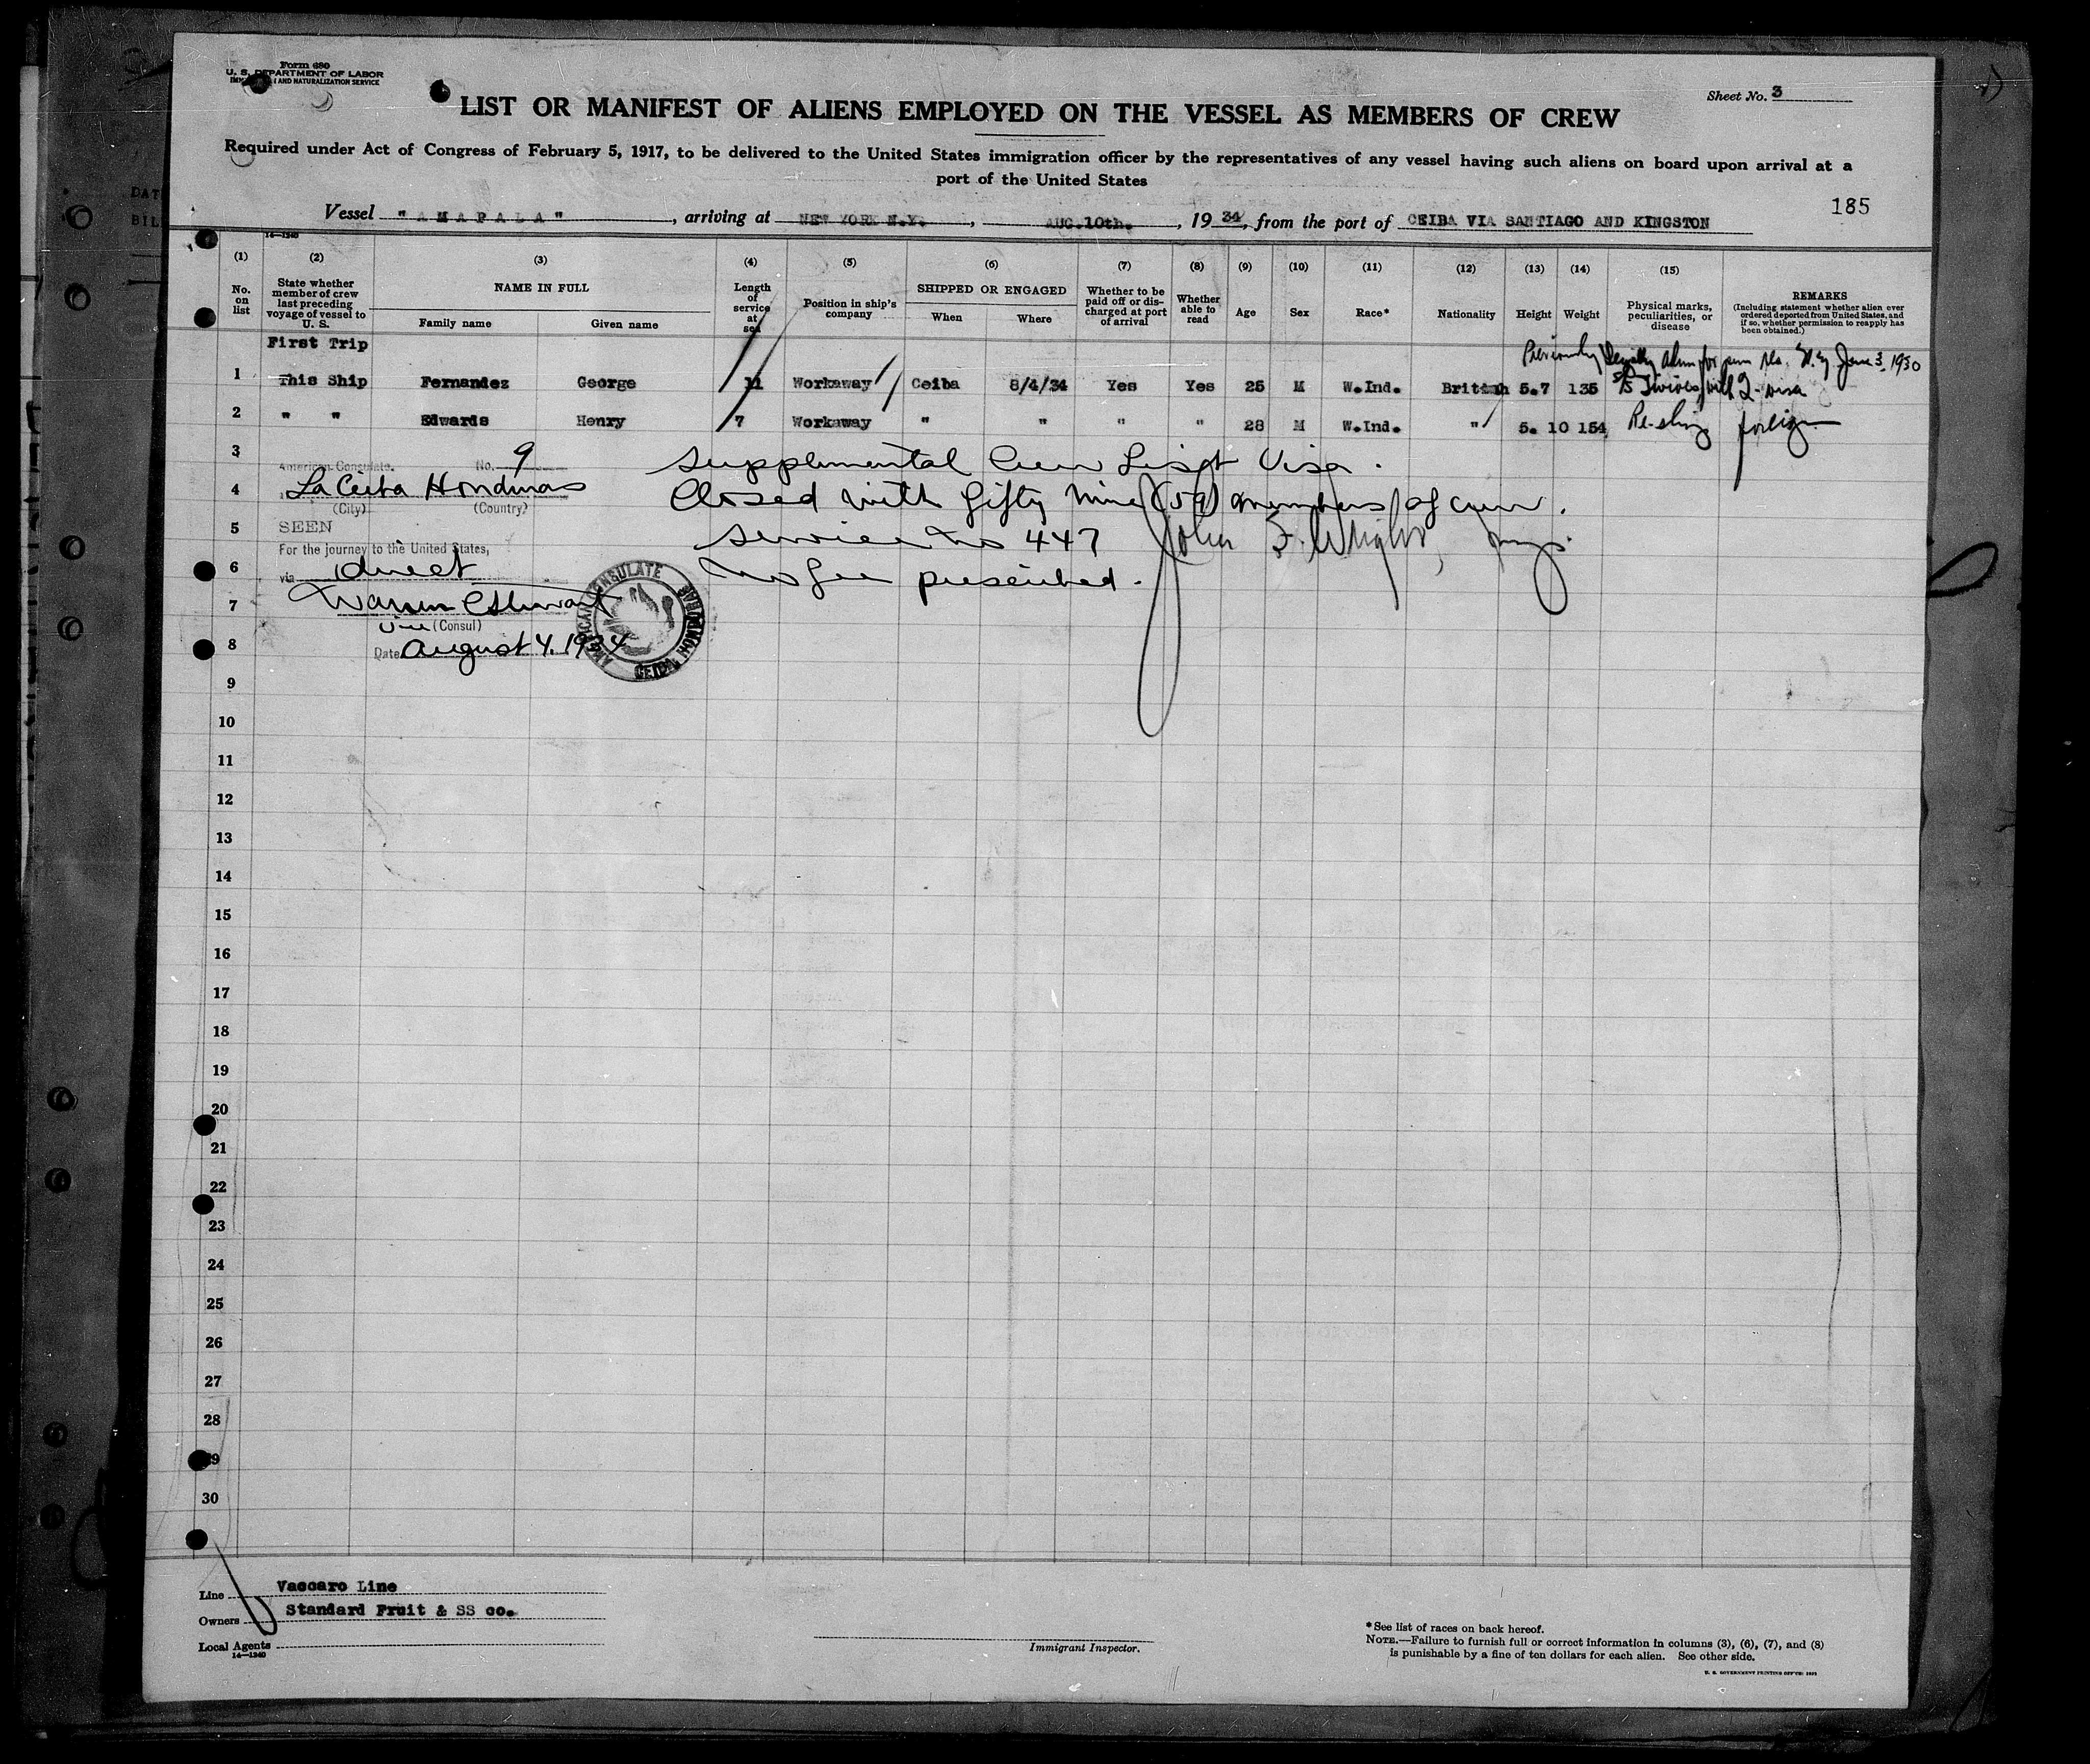 Form 680
U. S. DEPARTMENT OF LABOR
AND NATURALIZATION SERVICE
Sheet No. 3
LIST OR MANIFEST OF ALIENS EMPLOYED ON THE VESSEL AS MEMBERS OF CREW
Required under Act of Congress of February 5, 1917, to be delivered to the United States immigration officer by the representatives of any vessel having such aliens on board upon arrival at a
port of the United States
185
Vessel " A M A P A L A " , arriving at NEW YORK N.Y. , AUG.10th. , 19 34, from the port of CEIBA VIA SANTIAGO AND KINGSTON
14—1240
(1) (2) (3) (4) (5) (6) (7) (8) (9) (10) (11) (12) (13) (14) (15)
No. on list
State whether member of crew last preceding voyage of vessel to U. S.
NAME IN FULL
Family name Given name
Length of service at sea
Position in ship's company
SHIPPED OR ENGAGED
When Where
Whether to be paid off or discharged at port of arrival
Whether able to read
Age
Sex
Race*
Nationality
Height
Weight
Physical marks, peculiarities, or disease
REMARKS
(Including statement whether alien ever ordered deported from United States, and if so, whether permission to reapply has been obtained.)
First Trip
Previously for perm res. N.Y. June 3, 1930
1 This Ship Fernandez George 11 Workaway Ceiba 8/4/34 Yes Yes 25 M W.Ind. British 5.7 135
with visa
2 " " Edwards Henry 7 Workaway " " " " 28 M W.Ind. " 5. 10 154 foreign
3
American Consulate. No. 9
Supplemental Crew List Visa.
4
La Ceiba Honduras
(City) (Country)
Closed with fifty nine (59) members of crew.
5
SEEN
For the journey to the United States,
Service No 447
John F. Wright
6
via direct
No fee prescribed.
7
Warren C Stewart
Vice (Consul)
8
Date August 4, 1934
AMERICAN CONSULATE
CEIBA HONDURAS
9
10
11
12
13
14
15
16
17
18
19
20
21
22
23
24
25
26
27
28
29
30
Line Vaccaro Line
Owners Standard Fruit & SS co.
Local Agents
14—1240
Immigrant Inspector.
*See list of races on back hereof.
NOTE.—Failure to furnish full or correct information in columns (3), (6), (7), and (8)
is punishable by a fine of ten dollars for each alien. See other side.